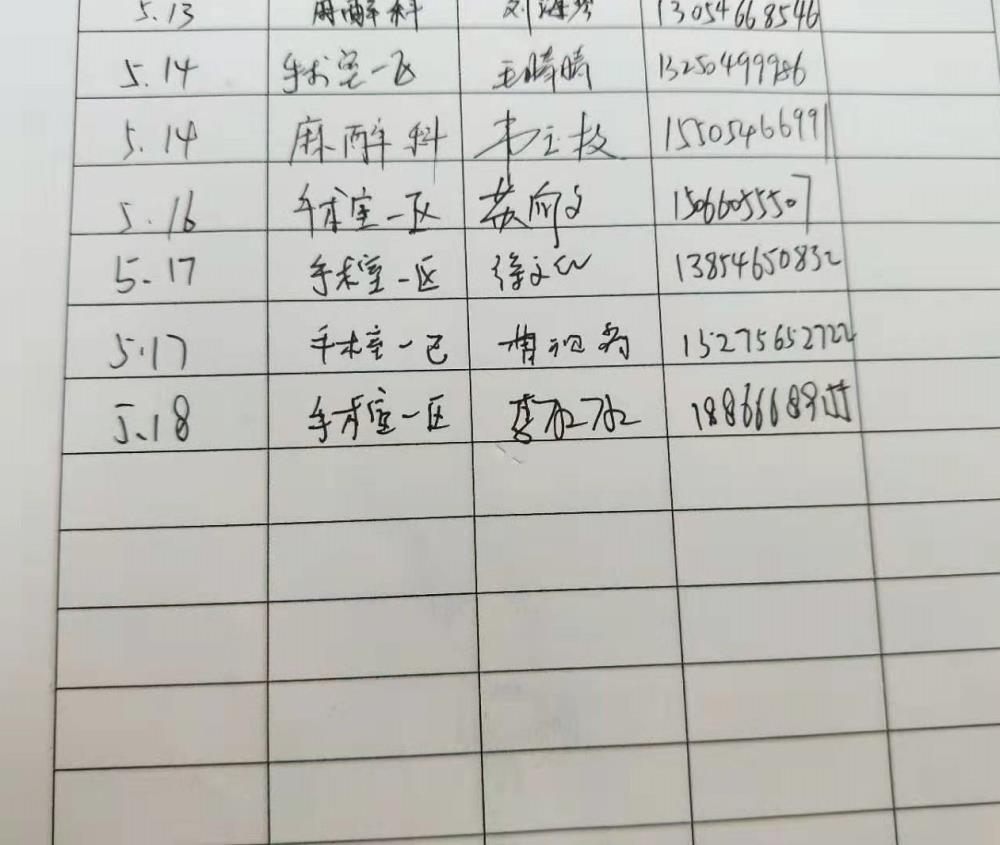 5.13 麻醉科 刘海琴 13054668546
5.14 手术室一区 王晴晴 13250499986
5.14 麻醉科 韦玉校 15505466991
5.16 手术室一区 苏向文 15066055507
5.17 手术室一区 徐文心 13854650832
5.17 手术室一区 15275652722
5.18 手术室一区